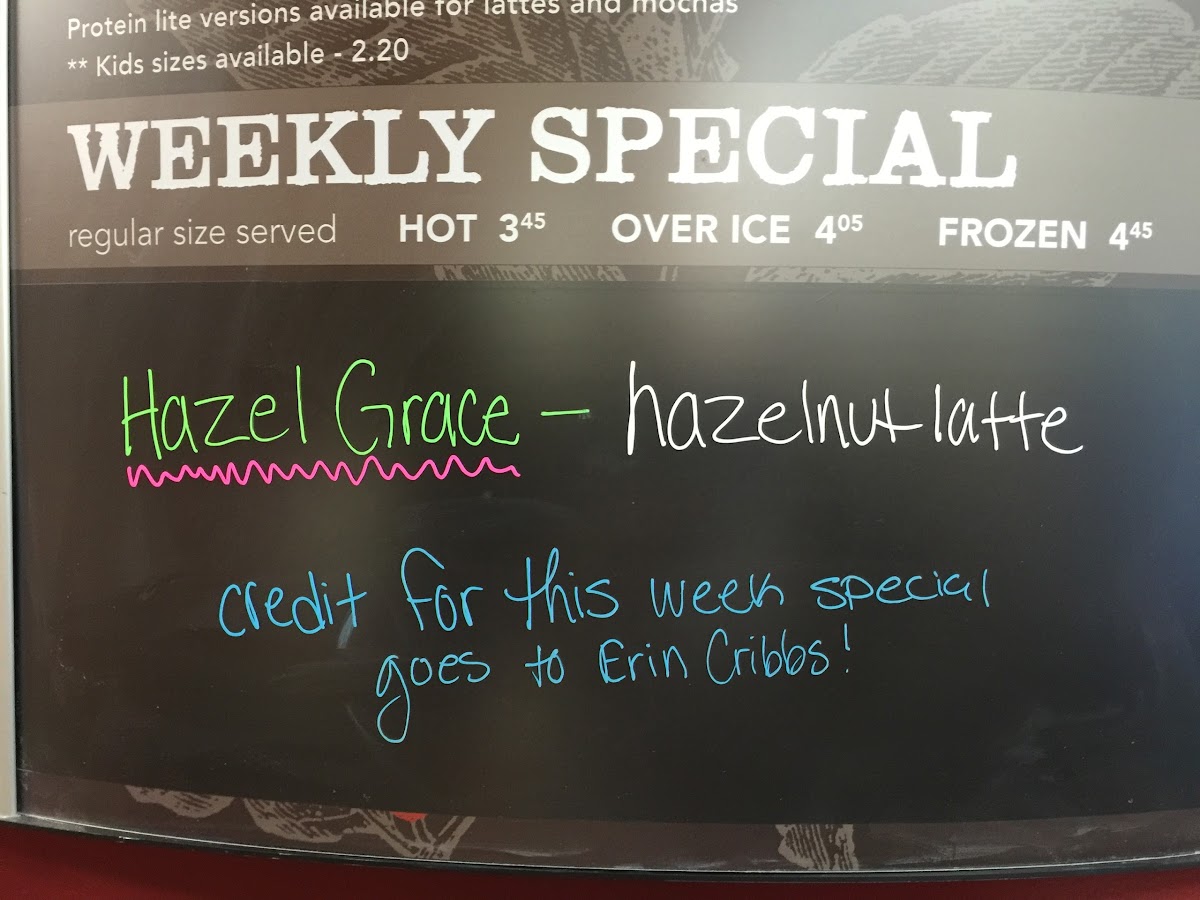 Protein lite versions available for lattes and mochas
** Kids sizes available - 2.20
WEEKLY SPECIAL
regular size served HOT 3.45 OVER ICE 4.05 FROZEN 4.45
Hazel Grace - hazelnut latte
credit for this week special
goes to Erin Cribbs!